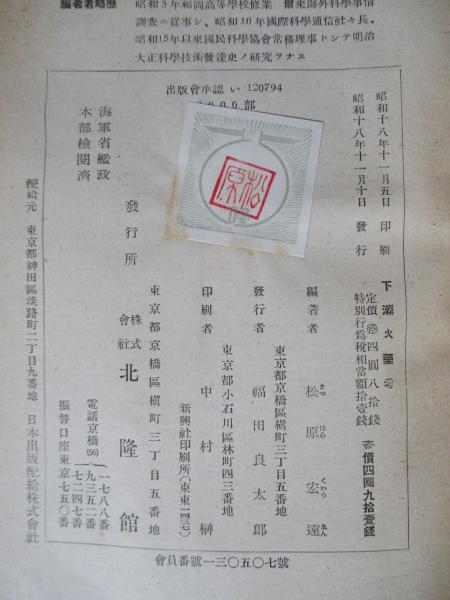 編著者略歴
昭和3年福岡高等學校修業 爾來海外科學事情
調査ニ從事シ、昭和10年國際科學通信社々長、
昭和15年以來國民科學協會常務理事トシテ明治
大正科學技術發達史ノ研究ヲナス
出版會承認 い 120794
000部
昭和十八年十一月五日 印刷
昭和十八年十一月十日 發行
下瀬火藥
定價 四圓八拾錢
特別行爲稅相當額拾壹錢
壹價四圓九拾壹錢
編著者 松原宏遠
まつ はら くわう ゑん
東京都京橋區槇町三丁目五番地
發行者 福田良太郎
東京都小石川區林町四三番地
印刷者 中村榊
新興社印刷所(東東一四三)
東京都京橋區槇町三丁目五番地
發行所 株式會社 北隆館
電話京橋(56)
一七八八番
九三五二番
七二四七番
振替口座東京七五〇番
海軍省艦政
本部檢閲濟
配給元 東京都神田區淡路町二丁目九番地 日本出版配給株式會社
會員番號一三〇五〇七號
松原